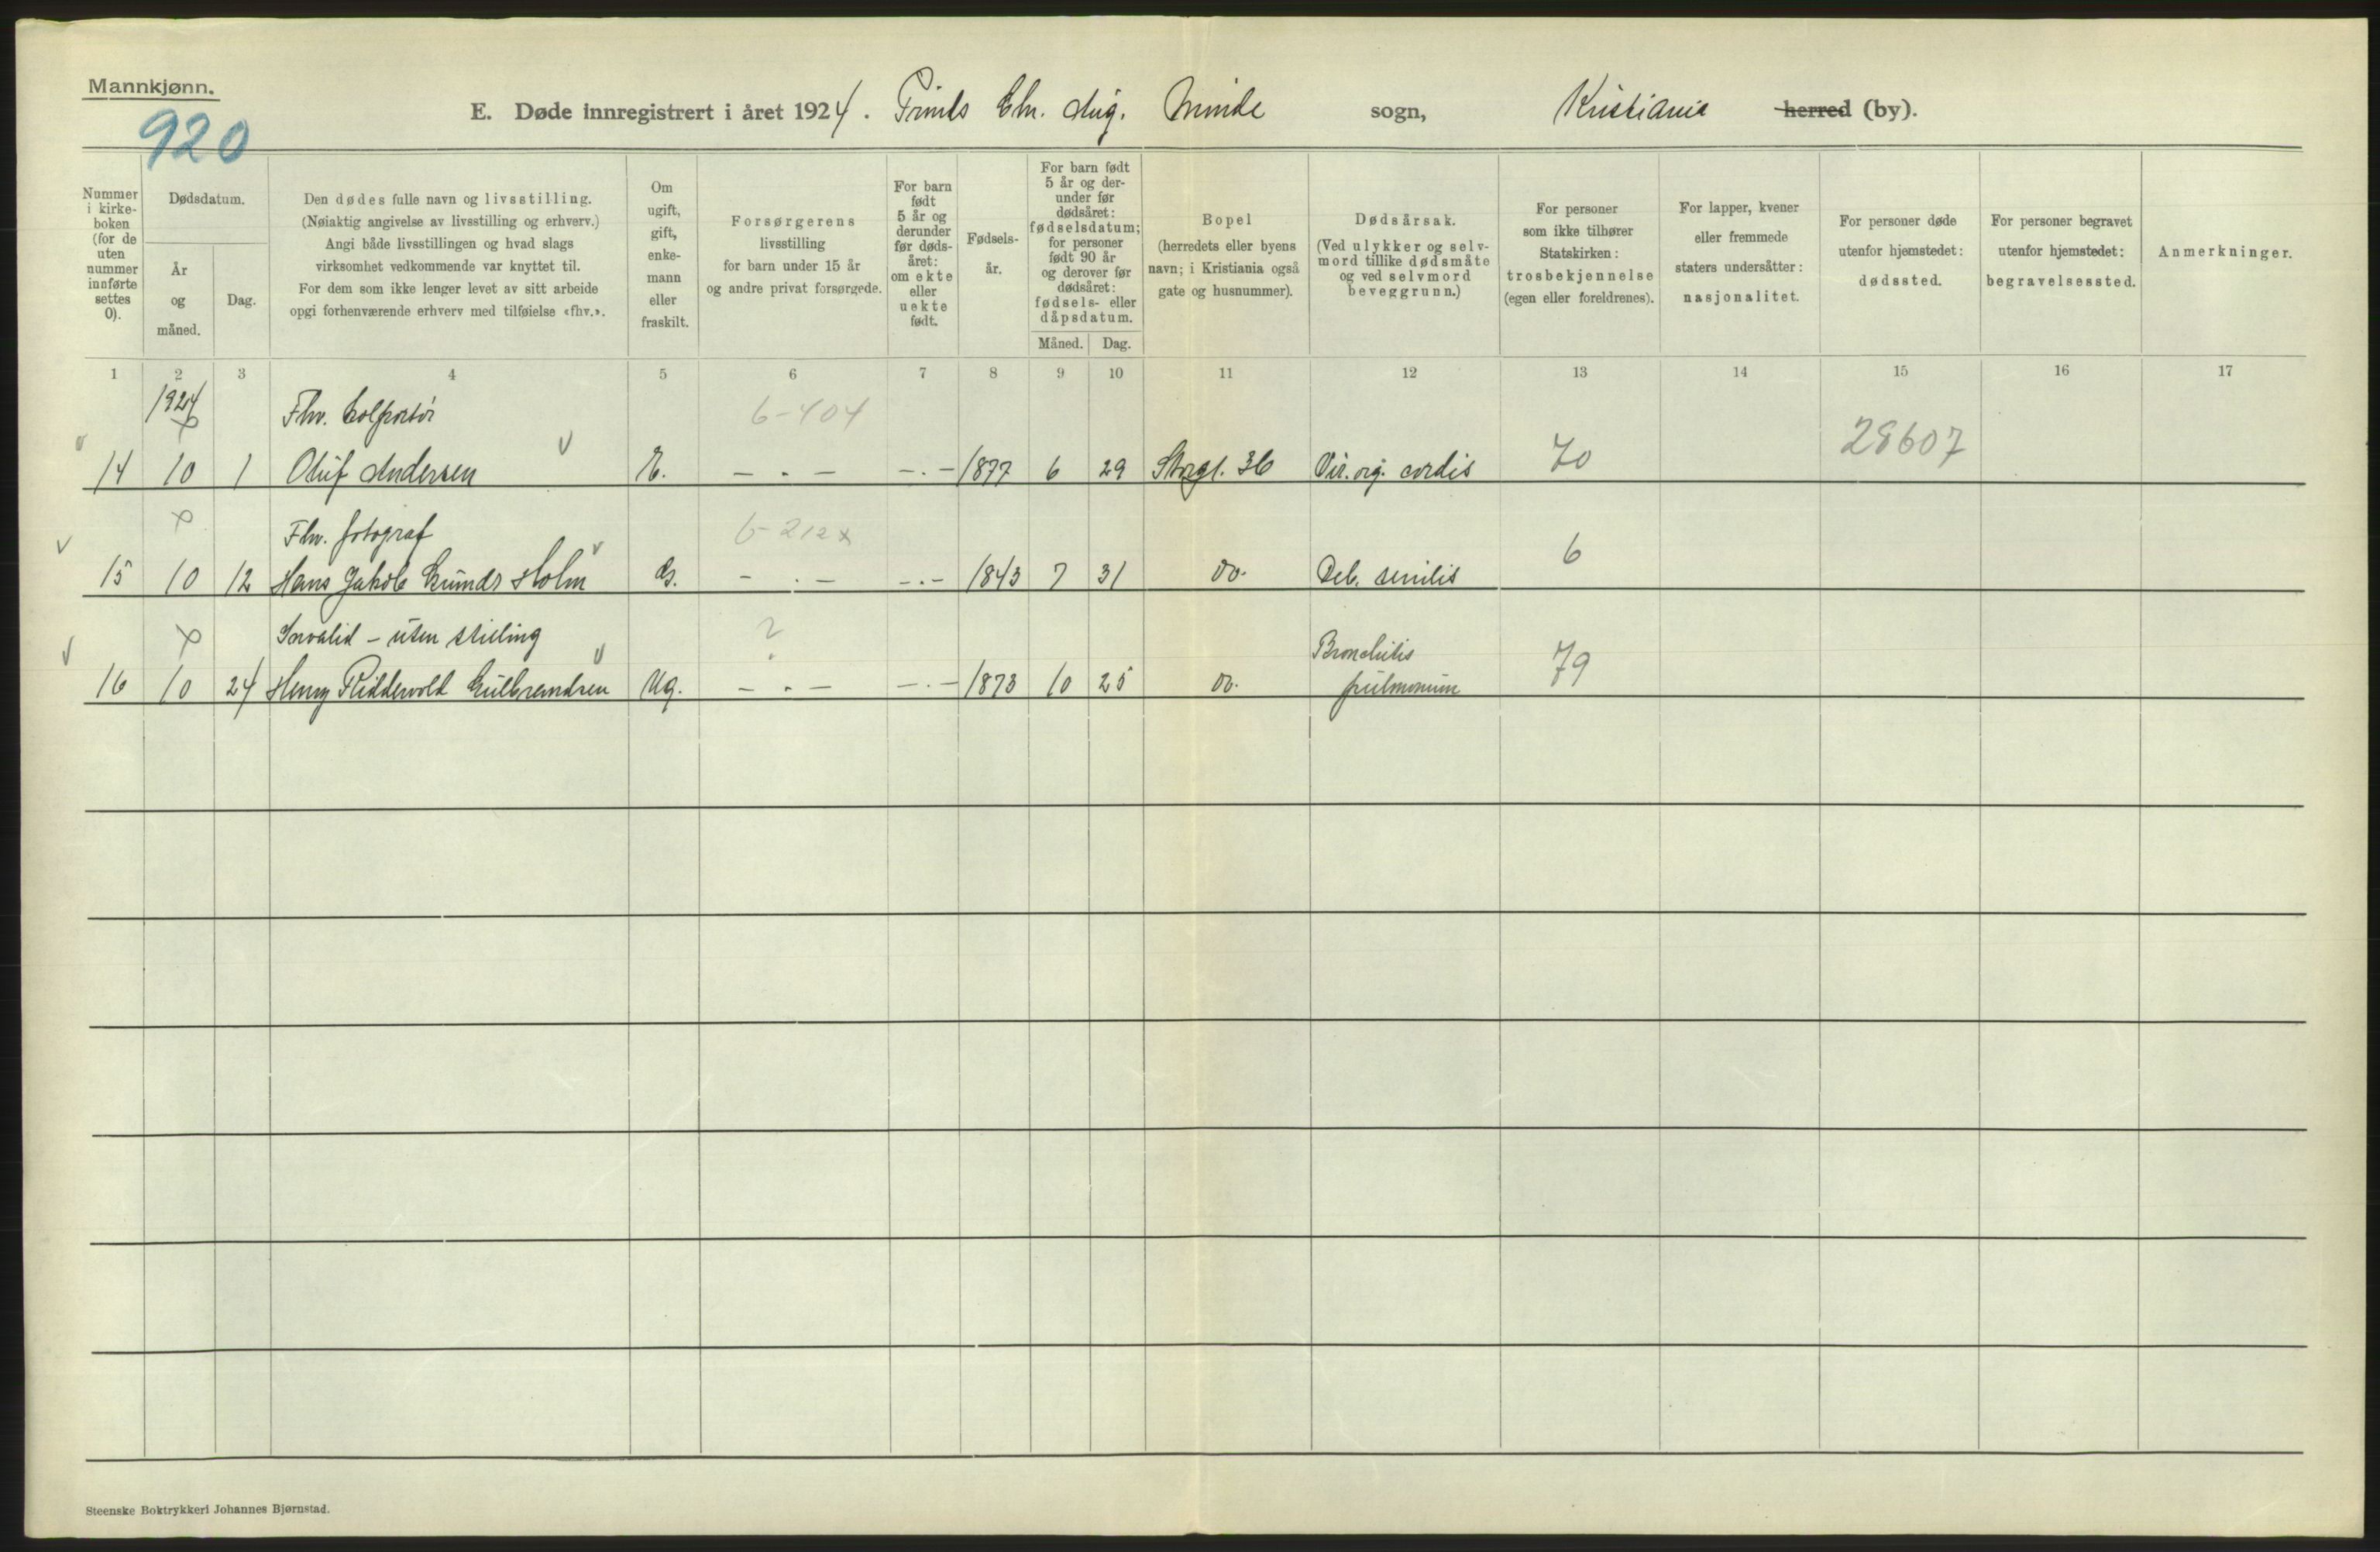 Mannkjønn.
920
E. Døde innregistrert i året 1924. Prinds Chr. Aug. Minde sogn, Kristiania herred (by).
Nummer i kirke-boken (for de uten nummer innførte settes 0).
Dødsdatum.
År og måned.
Dag.
Den dødes fulle navn og livsstilling.
(Nøiaktig angivelse av livsstilling og erhverv.)
Angi både livsstillingen og hvad slags
virksomhet vedkommende var knyttet til.
For dem som ikke lenger levet av sitt arbeide
opgi forhenværende erhverv med tilføielse «fhv.».
Om ugift, gift, enke-mann eller fraskilt.
Forsørgerens
livsstilling
for barn under 15 år
og andre privat forsørgede.
For barn født 5 år og derunder før døds-året: om ekte eller uekte født.
Fødsels-år.
For barn født 5 år og der-under før dødsåret: fødselsdatum; for personer født 90 år og derover før dødsåret: fødsels- eller dåpsdatum.
Måned. Dag.
Bopel
(herredets eller byens
navn; i Kristiania også
gate og husnummer).
Dødsårsak.
(Ved ulykker og selv-
mord tillike dødsmåte
og ved selvmord
beveggrunn.)
For personer
som ikke tilhører
Statskirken:
trosbekjennelse
(egen eller foreldrenes).
For lapper, kvener
eller fremmede
staters undersåtter:
nasjonalitet.
For personer døde
utenfor hjemstedet:
dødssted.
For personer begravet
utenfor hjemstedet:
begravelsessted.
Anmerkninger.
1 2 3 4 5 6 7 8 9 10 11 12 13 14 15 16 17
1924 Fhv. Colportør 6-404 28607
14 10 1 Oluf Andersen E. — . — — . — 1877 6 29 Storgt. 36 Vit. org. cordis 70
Fhv. fotograf 6-212x
15 10 12 Hans Jakob Holm G. — . — — . — 1843 7 31 do. Deb. senilis 6
Invalid – uten stilling ? Bronchitis
16 10 24 Henry Riddervold Gulbrandsen Ug. — . — — . — 1873 10 25 do. pulmonum 79
Steenske Boktrykkeri Johannes Bjørnstad.